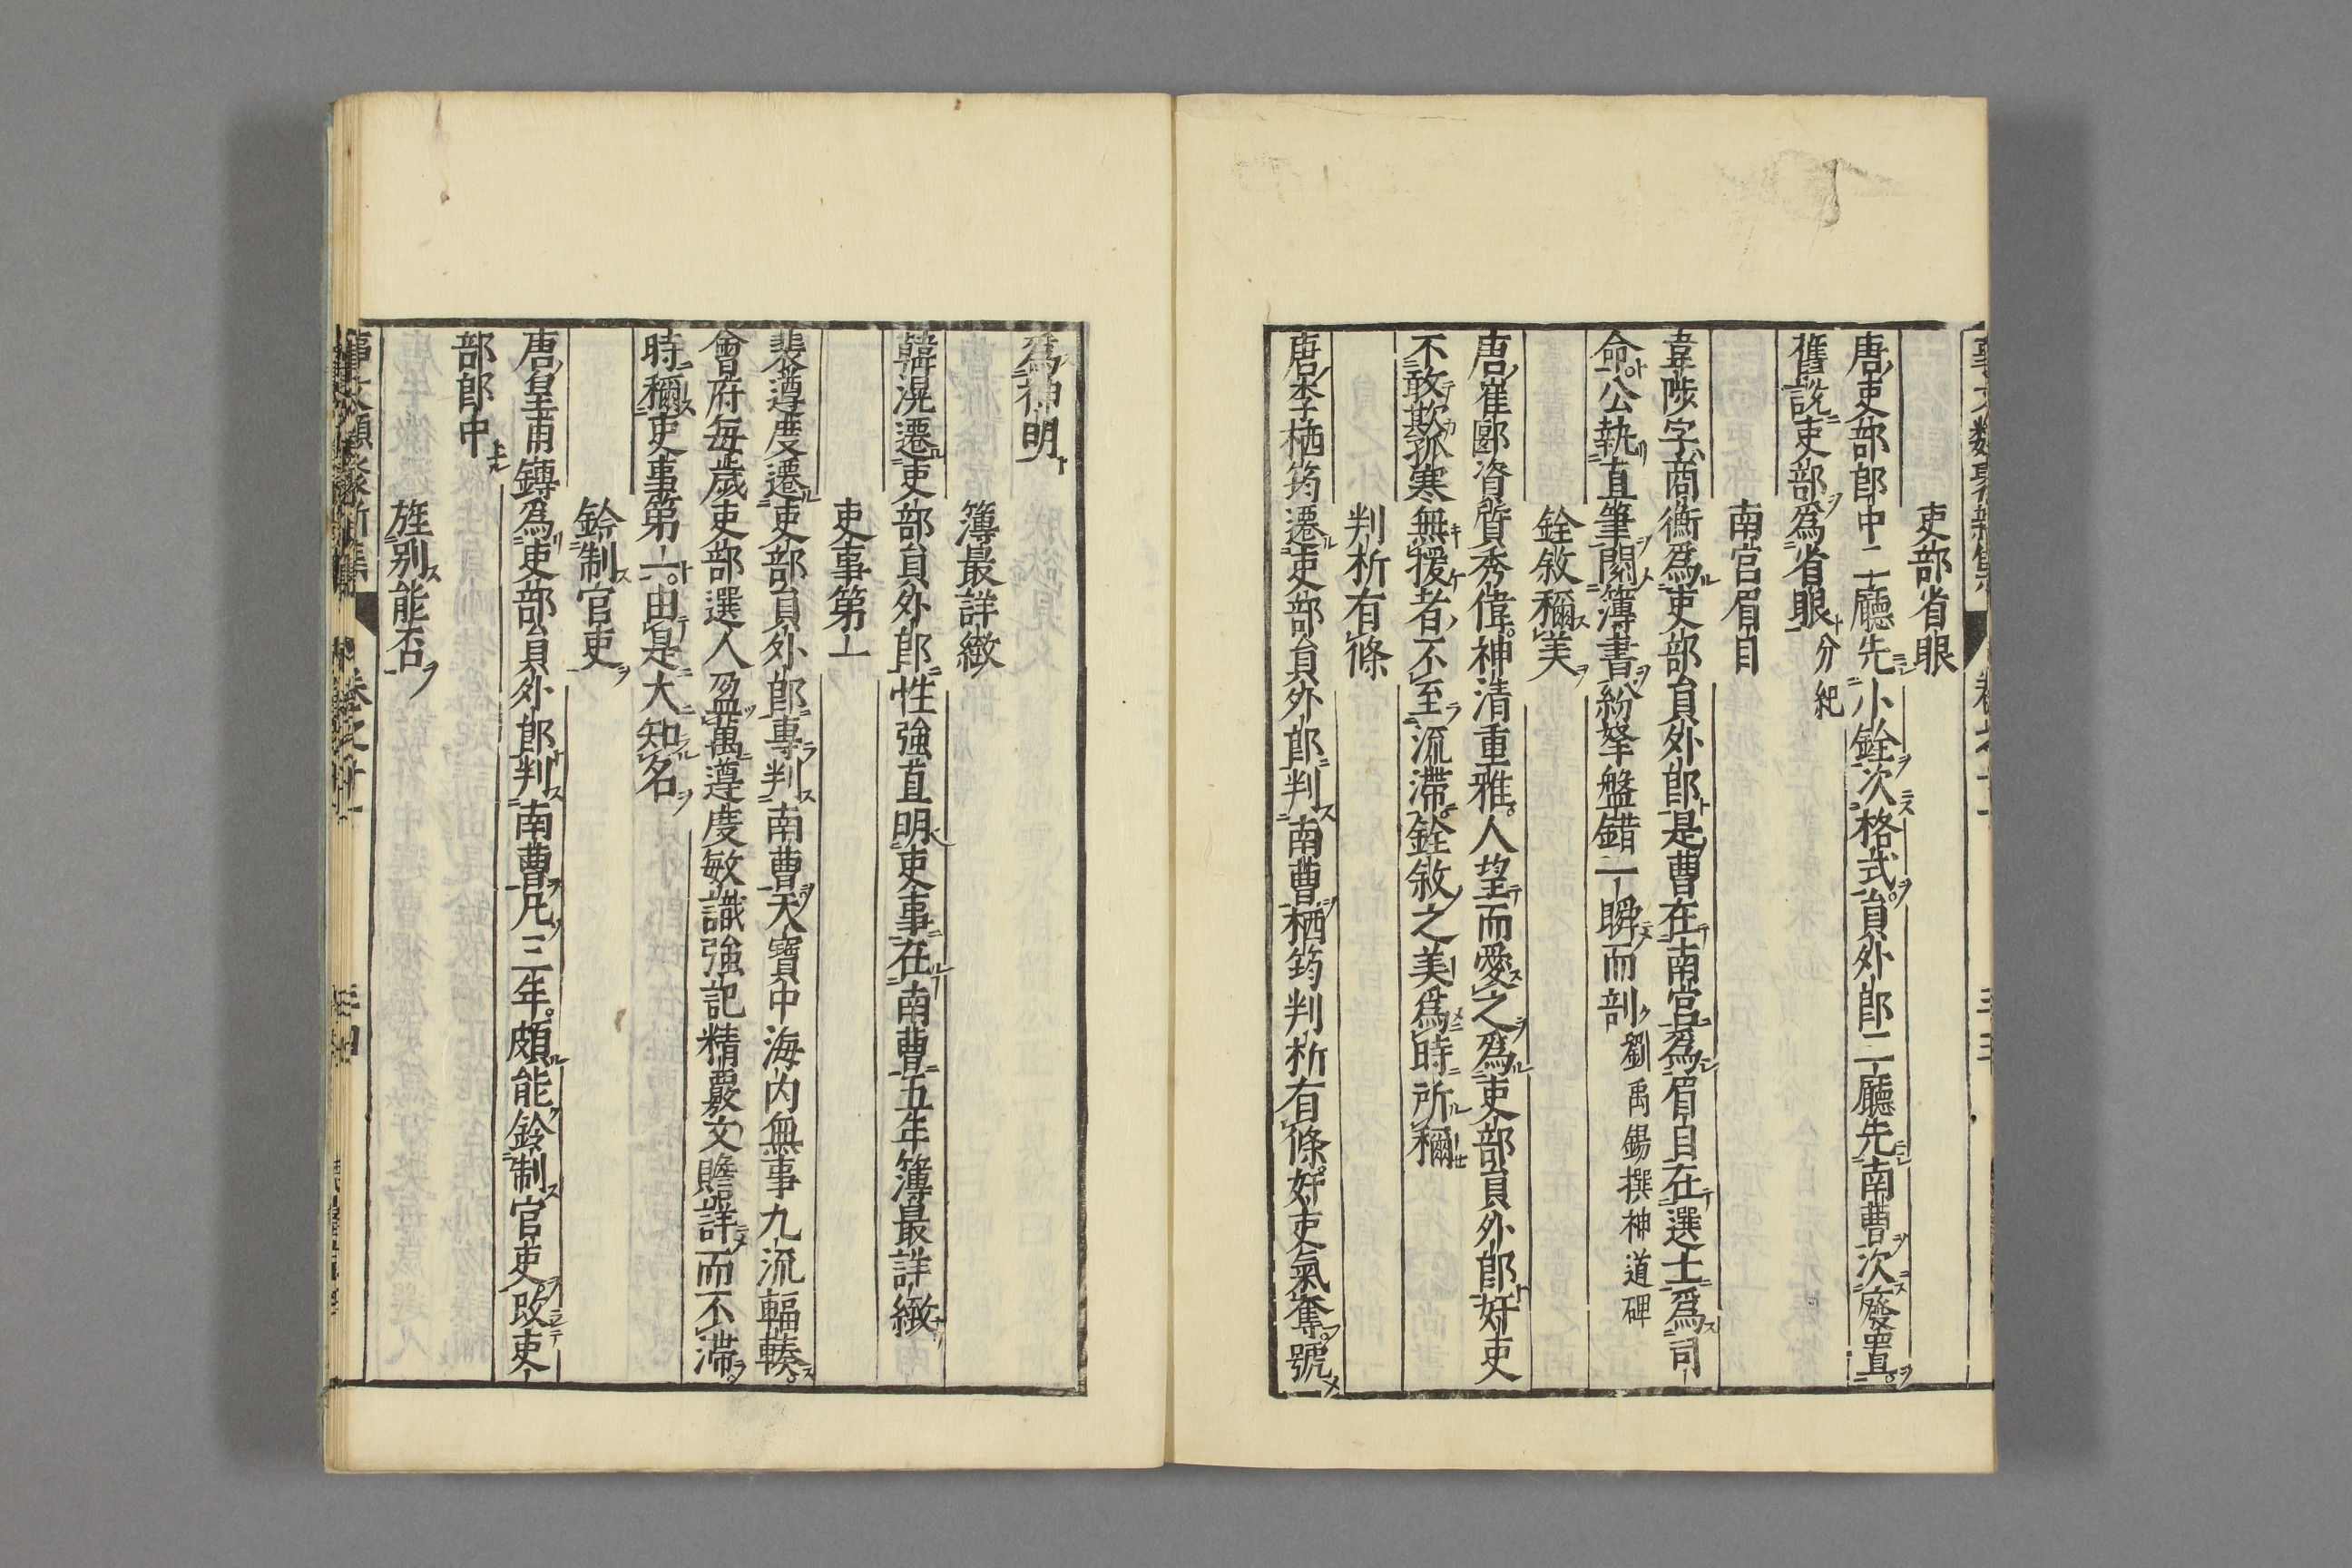 吏部省眼
唐吏部郎中二廳先小銓次格式員外郎二廳先南曹次廢置
舊說吏部爲省眼 分紀
南宮眉目
韋陟字商衡爲吏部員外郎是曹在南宮爲眉目在選士爲司
命公執直筆閱簿書紛拏盤錯一瞬而剖 劉禹錫撰神道碑
銓敘稱美
唐崔郾資質秀偉神清重雅人望而愛之爲吏部員外郎奸吏
不敢欺孤寒無援者不至流滯銓敘之美爲時所稱
判析有條
唐李栖筠遷吏部員外郎判南曹栖筠判析有條奸吏氣奪號
爲神明
簿最詳緻
韓滉遷吏部員外郎性強直明吏事在南曹五年簿最詳緻
吏事第一
裴遵度遷吏部員外郎專判南曹天寶中海內無事九流輻輳
會府每歲吏部選人盈萬遵度敏識強記精覈文贍詳而不滯
時稱吏事第一由是大知名
鈐制官吏
唐皇甫鏄爲吏部員外郎判南曹凡三年頗能鈐制官吏改吏
部郎中
旌别能否